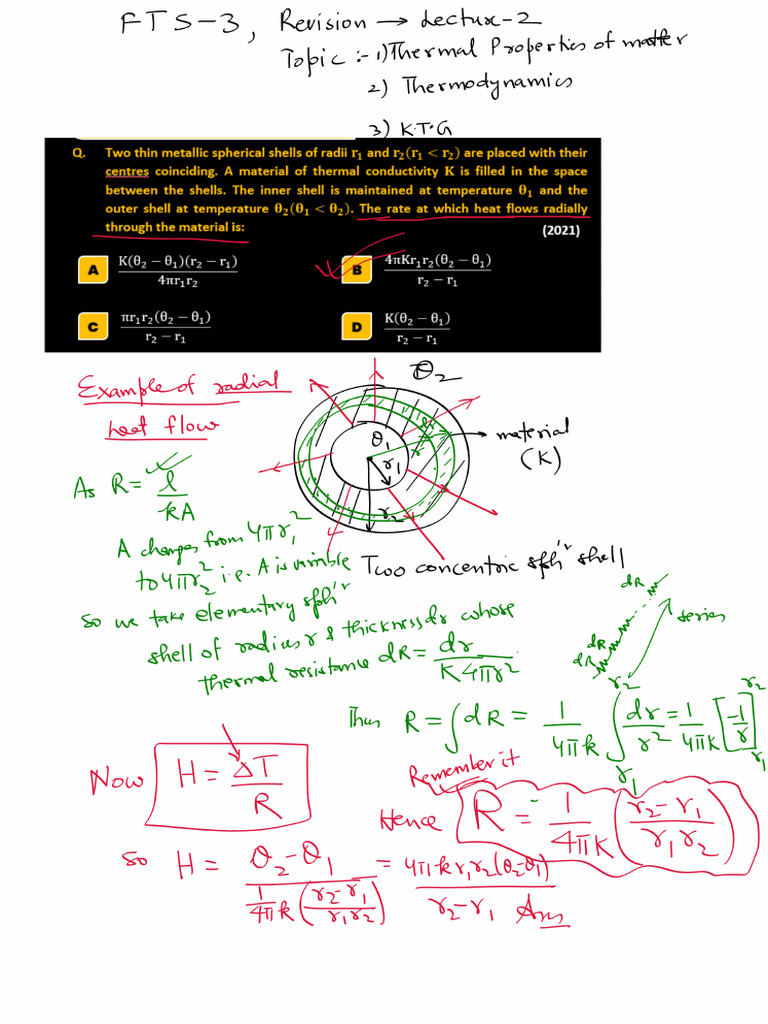 FTS-3, Revision → Lecture-2
Topic :- 1) Thermal Properties of matter
2) Thermodynamics
3) K.T.G
Q. Two thin metallic spherical shells of radii r₁ and r₂(r₁ < r₂) are placed with their
centres coinciding. A material of thermal conductivity K is filled in the space
between the shells. The inner shell is maintained at temperature θ₁ and the
outer shell at temperature θ₂(θ₁ < θ₂). The rate at which heat flows radially
through the material is: (2021)
A K(θ₂ − θ₁)(r₂ − r₁) / 4πr₁r₂
B 4πKr₁r₂(θ₂ − θ₁) / r₂ − r₁
C πr₁r₂(θ₂ − θ₁) / r₂ − r₁
D K(θ₂ − θ₁) / r₂ − r₁
Example of radial
heat flow
θ₂
θ₁
r₁
r₂
r
dr
→ material
(K)
As R = l / kA
A changes from 4πr₁²
to 4πr₂² i.e. A is variable
Two concentric sph'r shell
So we take elementary sph'r
shell of radius r & thickness dr whose
thermal resistance dR = dr / K4πr²
dR
dR
dR
series
Thus R = ∫dR = 1/4πk ∫r₁r₂ dr/r² = 1/4πK [-1/r]r₁r₂
Now H = ΔT / R
Remember it
Hence R = 1/4πK (r₂-r₁ / r₁r₂)
So H = θ₂-θ₁ / 1/4πk (r₂-r₁ / r₁r₂) = 4πkr₁r₂(θ₂-θ₁) / r₂-r₁ Ans